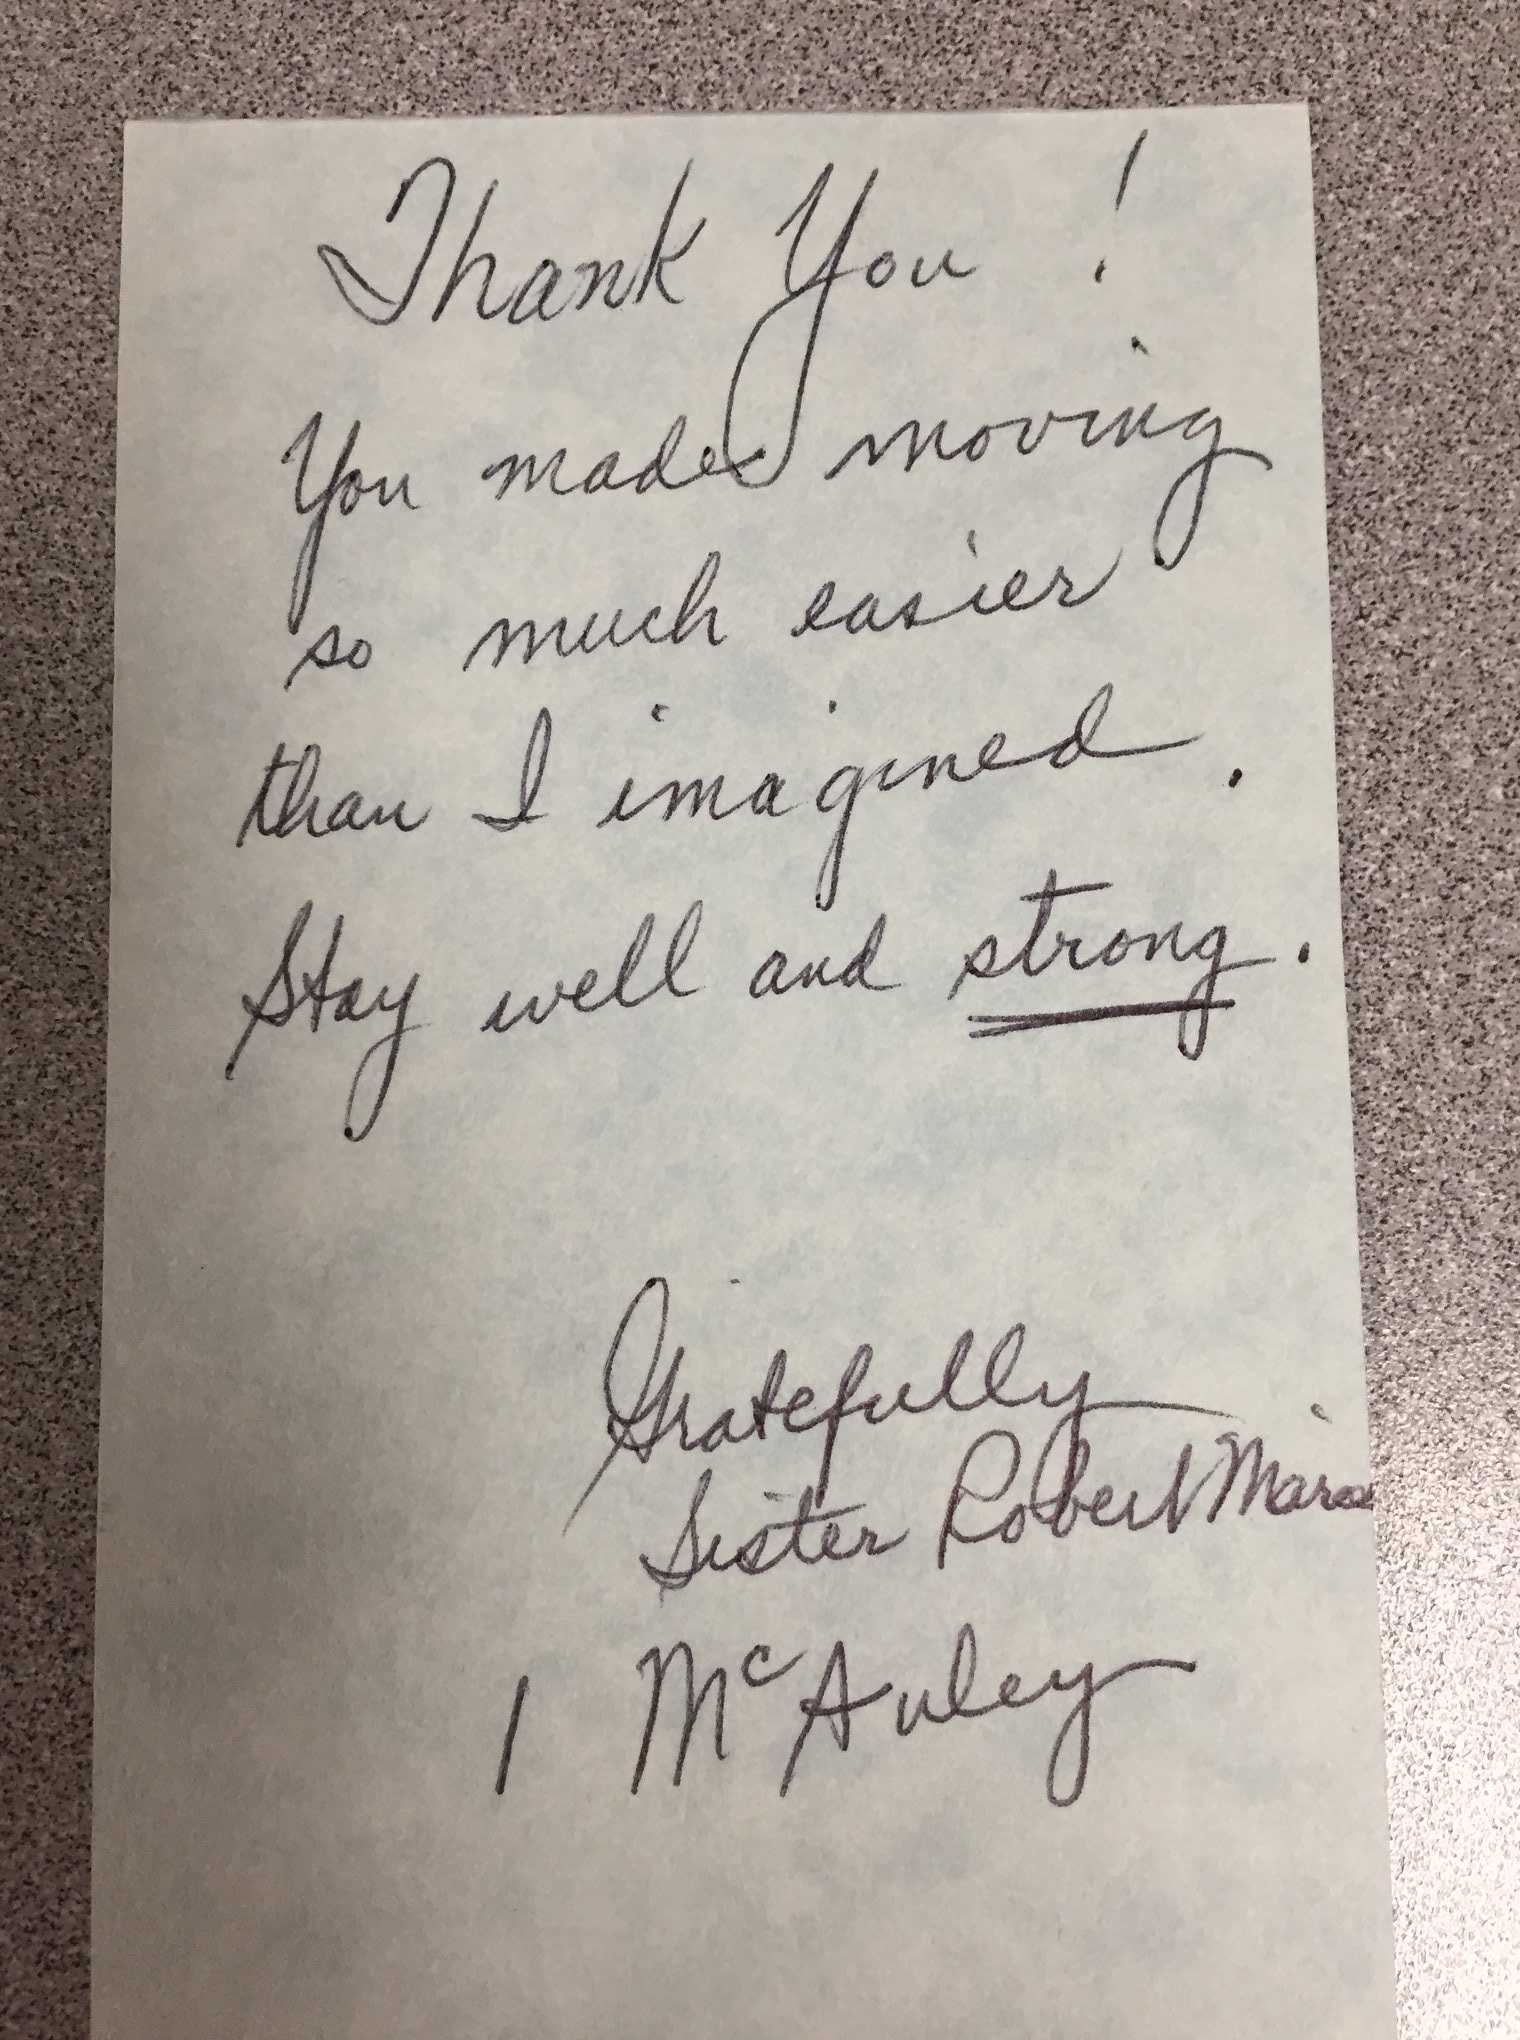 Thank You !
You made moving
so much easier
than I imagined .
Stay well and strong .
Gratefully
Sister Robert Marie
1 McAuley